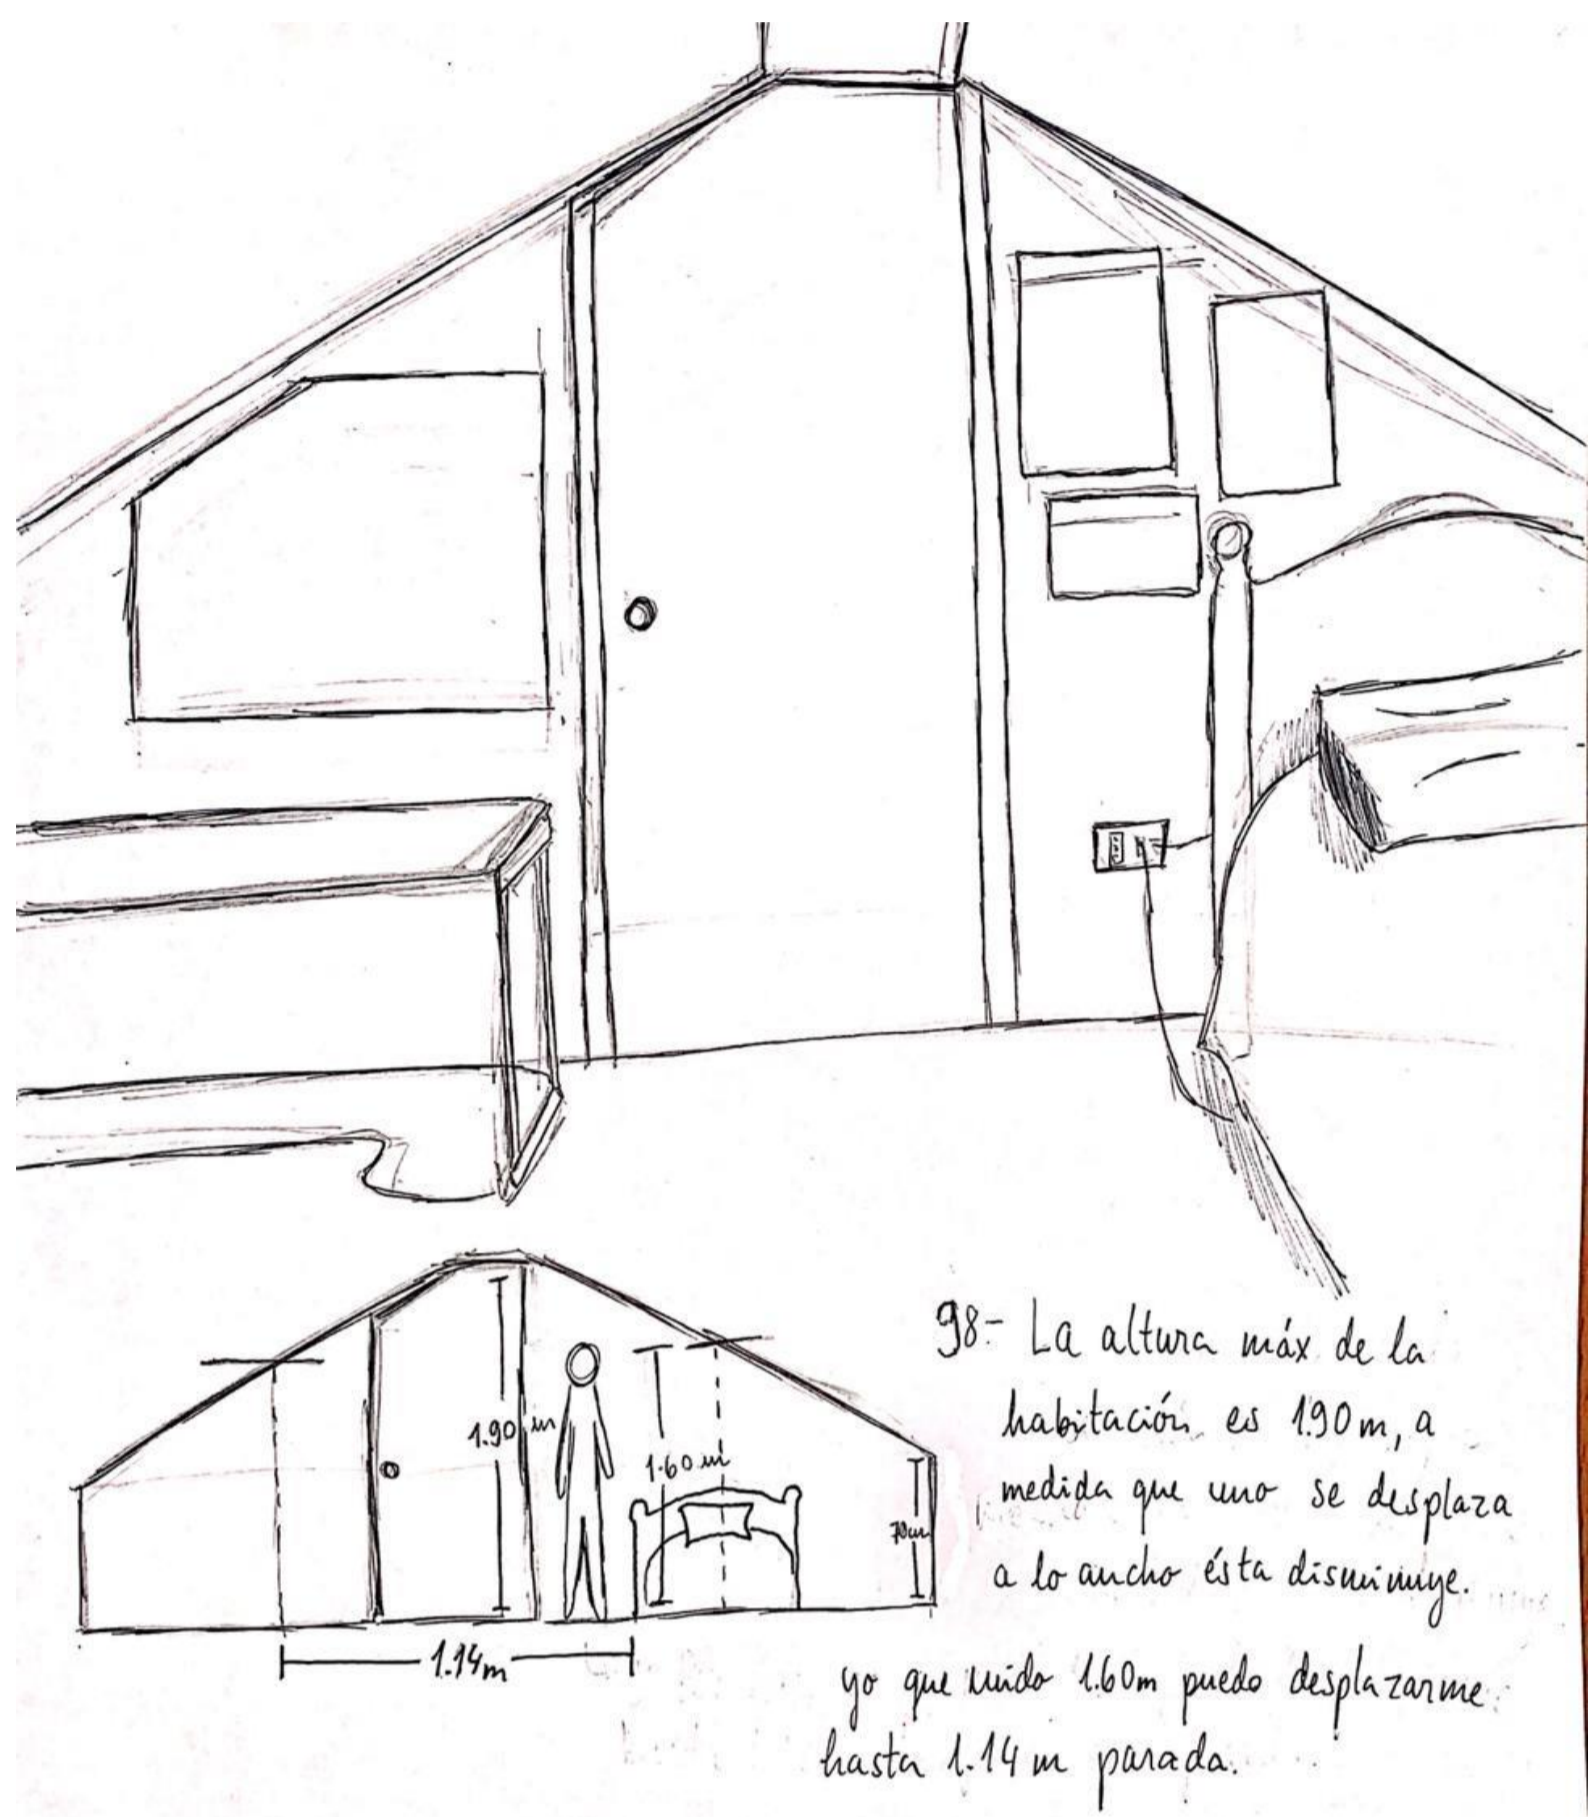 1.90 m
1.60 m
70cm
1.14m
98.- La altura máx de la
habitación es 1.90m, a
medida que uno se desplaza
a lo ancho ésta disminuye.
yo que mido 1.60m puedo desplazarme
hasta 1.14 m parada.